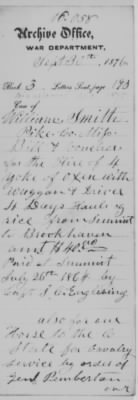 16.058
Archive Office,
WAR DEPARTMENT,
Sept 30th, 1876
Book 3 Letters Sent, page 193
Case of
William Smith
Pike Co Miss
Bill & Voucher
for the Hire of 4
yoke of oxen with
Waggon & Driver
4 Days Hauling
rice from Summit
to Brookhaven
amt $40.00
Paid at Summit
July 26th 1864 by
Capt
also for one
Horse to the C.
State for Cavalry
Service by order of
Genl Pemberton
over